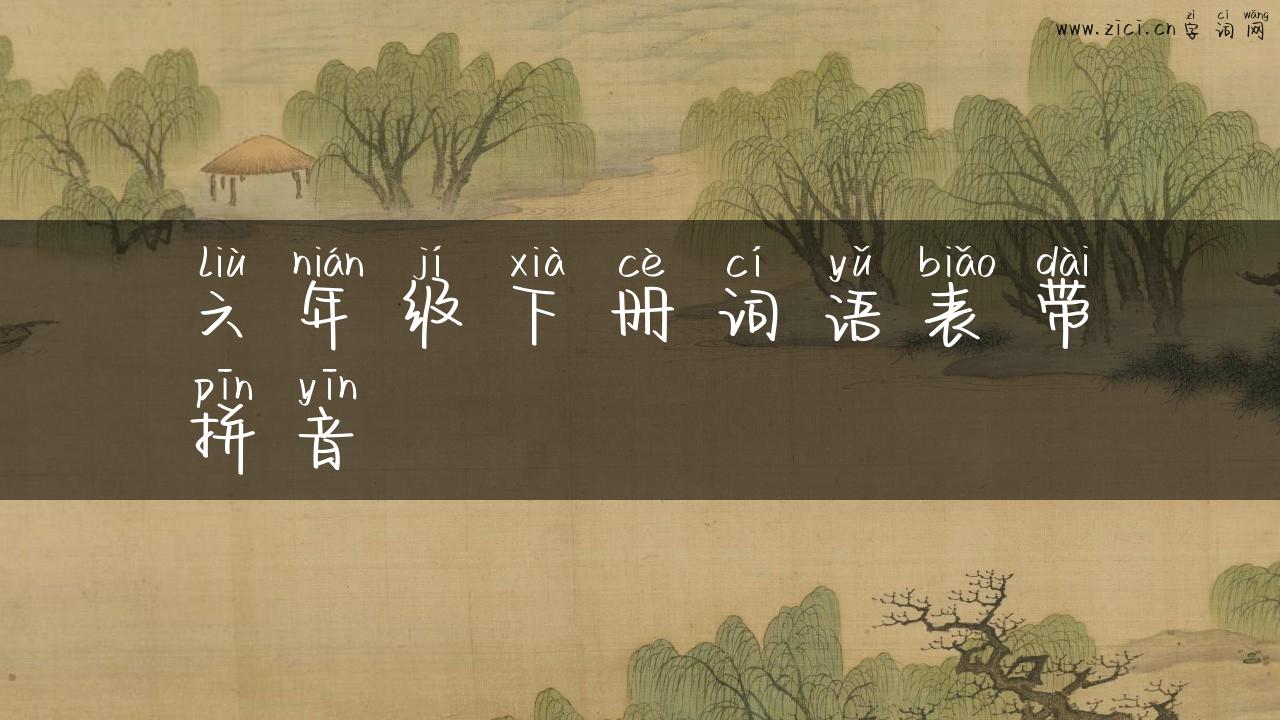 zì cí wǎng
www.zici.cn 字词网
liù nián jí xià cè cí yǔ biǎo dài
六年级下册词语表带
pīn yīn
拼音